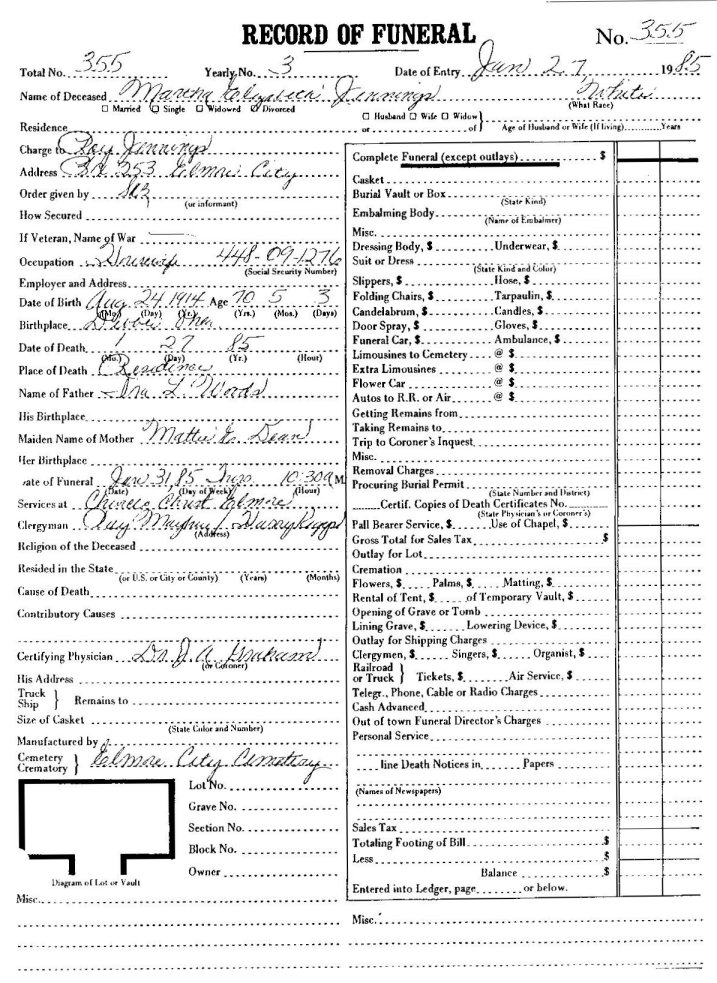 RECORD OF FUNERAL No. 355
Total No. 355 Yearly No. 3 Date of Entry Jan 27, 1985
Name of Deceased Martha Elizabeth Jennings White
(What Race)
☐ Married ☐ Single ☐ Widowed ☑ Divorced
☐ Husband ☐ Wife ☐ Widow }
or of } Age of Husband or Wife (If living) Years
Residence
Charge to Ray Jennings
Address 253 Elmore City
Order given by
(or informant)
How Secured
If Veteran, Name of War
Occupation Housewife 448-09-1276
(Social Security Number)
Employer and Address
Date of Birth Aug 24 1914 Age 70 5 3
(Mo.) (Day) (Yr.) (Yrs.) (Mos.) (Days)
Birthplace
Date of Death 1 27 85
(Mo.) (Day) (Yr.) (Hour)
Place of Death Residence
Name of Father Ira L. Woods
His Birthplace
Maiden Name of Mother Mattie Dean
Her Birthplace
ate of Funeral Jan 31, 85 Thurs. 10:30 A M
(Date) (Day of Week) (Hour)
Services at Church Christ Elmore
Clergyman Ray
(Address)
Religion of the Deceased
Resided in the State
(or U.S. or City or County) (Years) (Months)
Cause of Death
Contributory Causes
Certifying Physician Dr. J. A. Graham
(or Coroner)
His Address
Truck }
Ship } Remains to
Size of Casket
(State Color and Number)
Manufactured by
Cemetery }
Crematory } Elmore City Cemetery
Lot No.
Grave No.
Section No.
Block No.
Owner
Diagram of Lot or Vault
Misc.
Complete Funeral (except outlays) $
Casket
Burial Vault or Box
(State Kind)
Embalming Body
(Name of Embalmer)
Misc.
Dressing Body, $ Underwear, $
Suit or Dress
(State Kind and Color)
Slippers, $ Hose, $
Folding Chairs, $ Tarpaulin, $
Candelabrum, $ Candles, $
Door Spray, $ Gloves, $
Funeral Car, $ Ambulance, $
Limousines to Cemetery @ $
Extra Limousines @ $
Flower Car @ $
Autos to R.R. or Air @ $
Getting Remains from
Taking Remains to
Trip to Coroner's Inquest
Misc.
Removal Charges
Procuring Burial Permit
(State Number and District)
Certif. Copies of Death Certificates No.
(State Physician's or Coroner's)
Pall Bearer Service, $ Use of Chapel, $
Gross Total for Sales Tax $
Outlay for Lot
Cremation
Flowers, $ Palms, $ Matting, $
Rental of Tent, $ of Temporary Vault, $
Opening of Grave or Tomb
Lining Grave, $ Lowering Device, $
Outlay for Shipping Charges
Clergymen, $ Singers, $ Organist, $
Railroad }
or Truck } Tickets, $ Air Service, $
Telegr., Phone, Cable or Radio Charges
Cash Advanced
Out of town Funeral Director's Charges
Personal Service
line Death Notices in Papers
(Names of Newspapers)
Sales Tax
Totaling Footing of Bill $
Less $
Balance $
Entered into Ledger, page or below.
Misc.